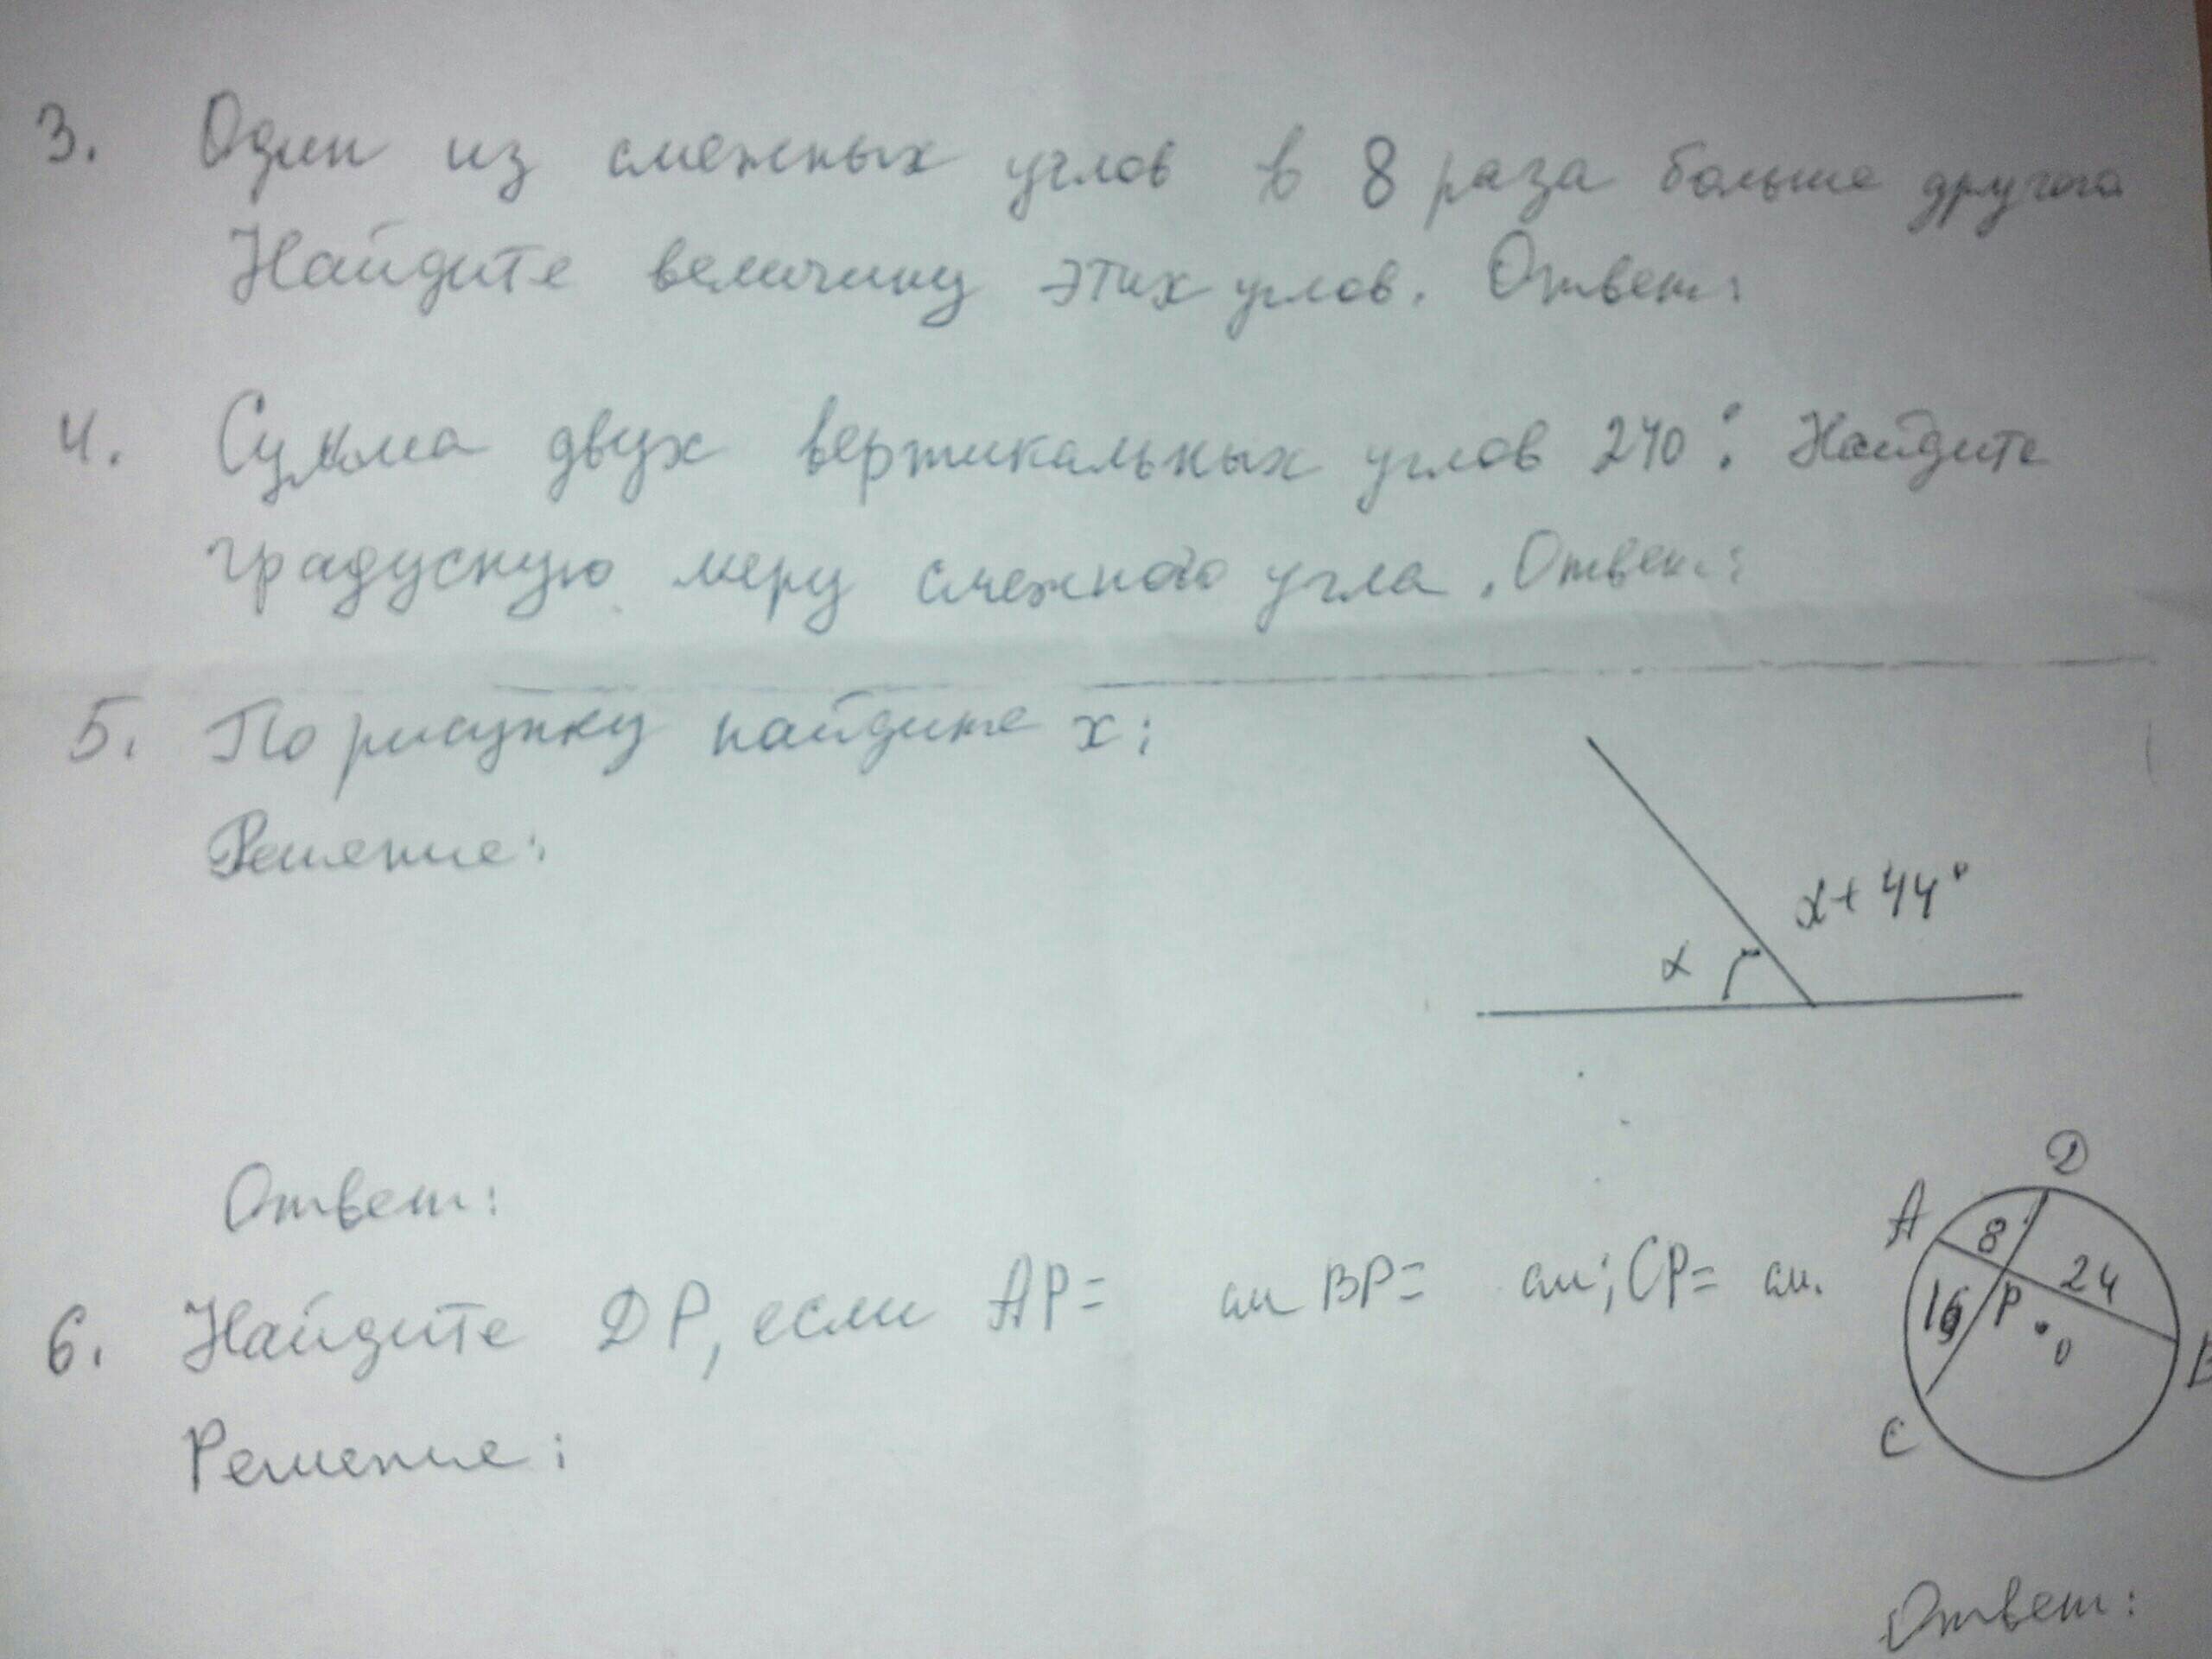 3. Один из смежных углов в 8 раза больше другого
Найдите величину этих углов. Ответ:
4. Сумма двух вертикальных углов 240°. Найдите
градусную меру смежного угла. Ответ:
5. По рисунку найдите x:
Решение:
x+44°
x
Ответ:
6. Найдите DP, если AP= см BP= см; CP= см.
D
A
8
24
16
P
O
B
C
Решение:
Ответ: